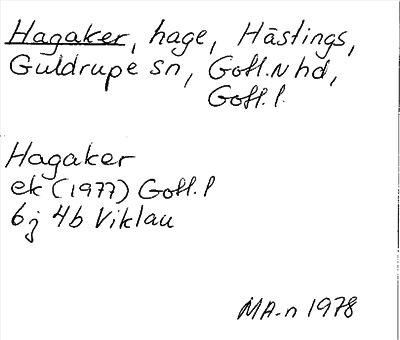 Hagaker, hage, Hästings,
Guldrupe sn, Gotl. N hd,
Gotl. l.
Hagaker
ek (1977) Gotl. l
6j 4b Viklau
MA-n 1978